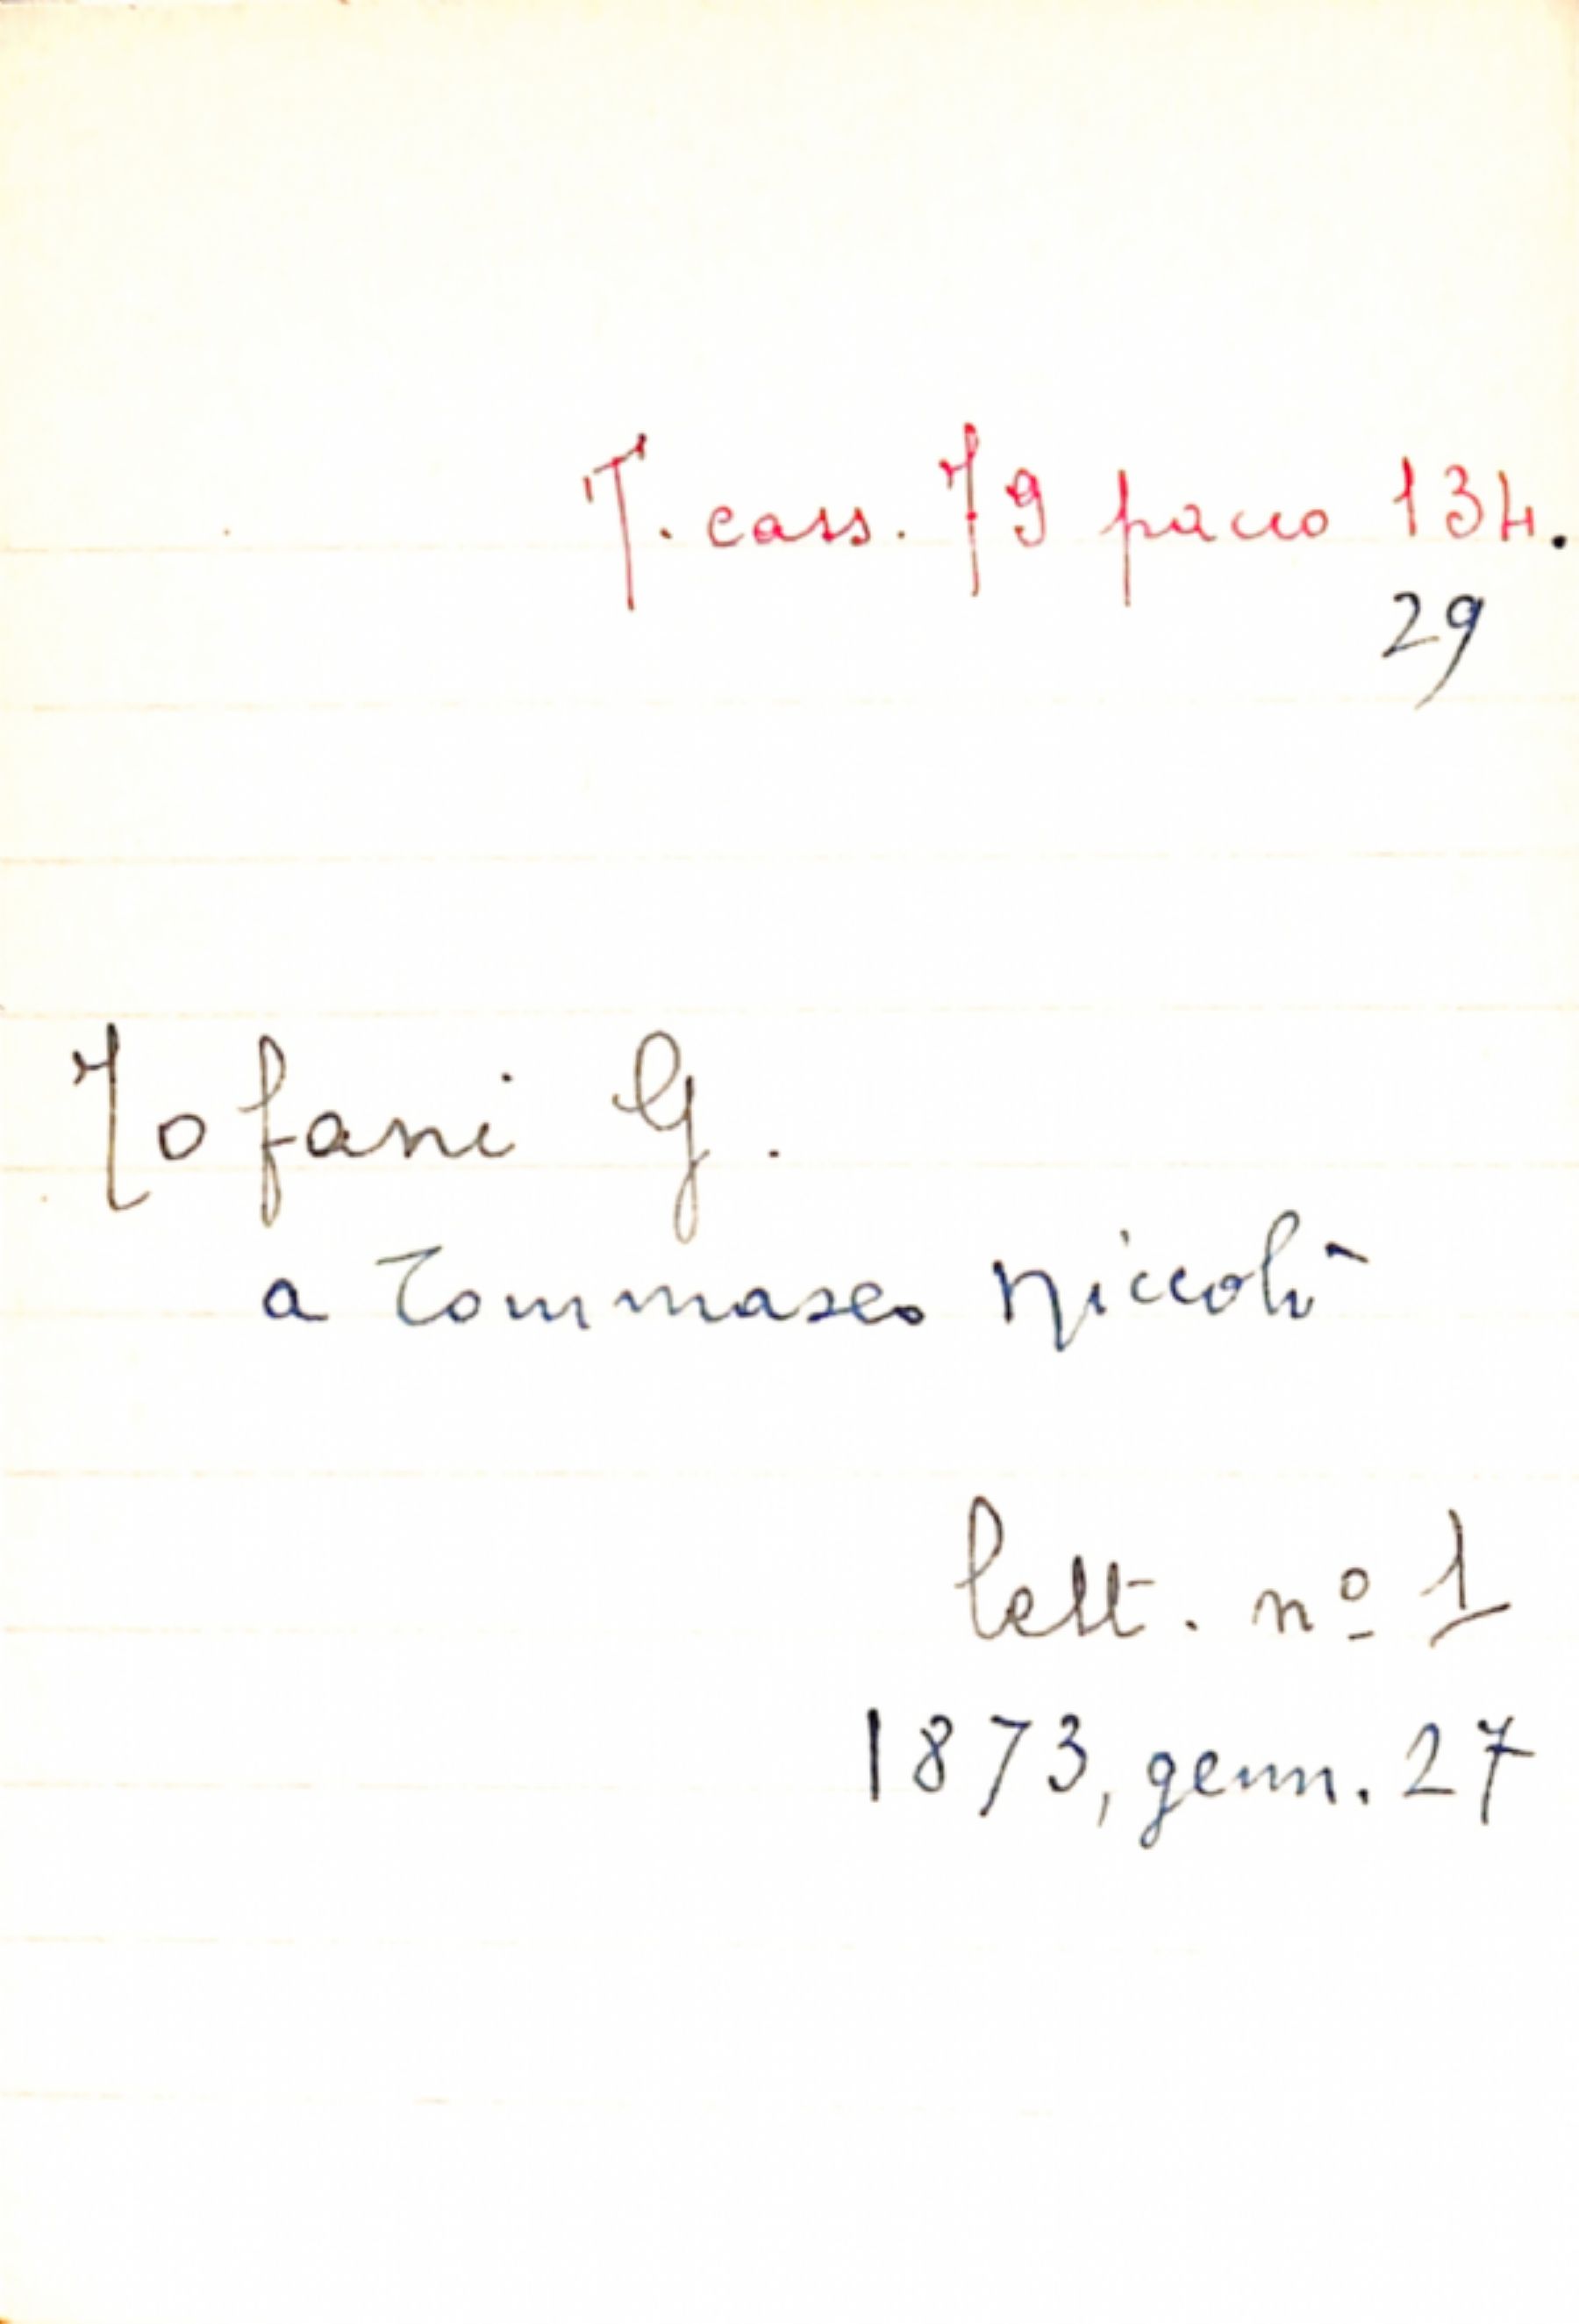 T. cass. 79 pacco 134.
29
Tofani G.
a Tommaseo Niccolò
lett. nº 1
1873, genn. 27